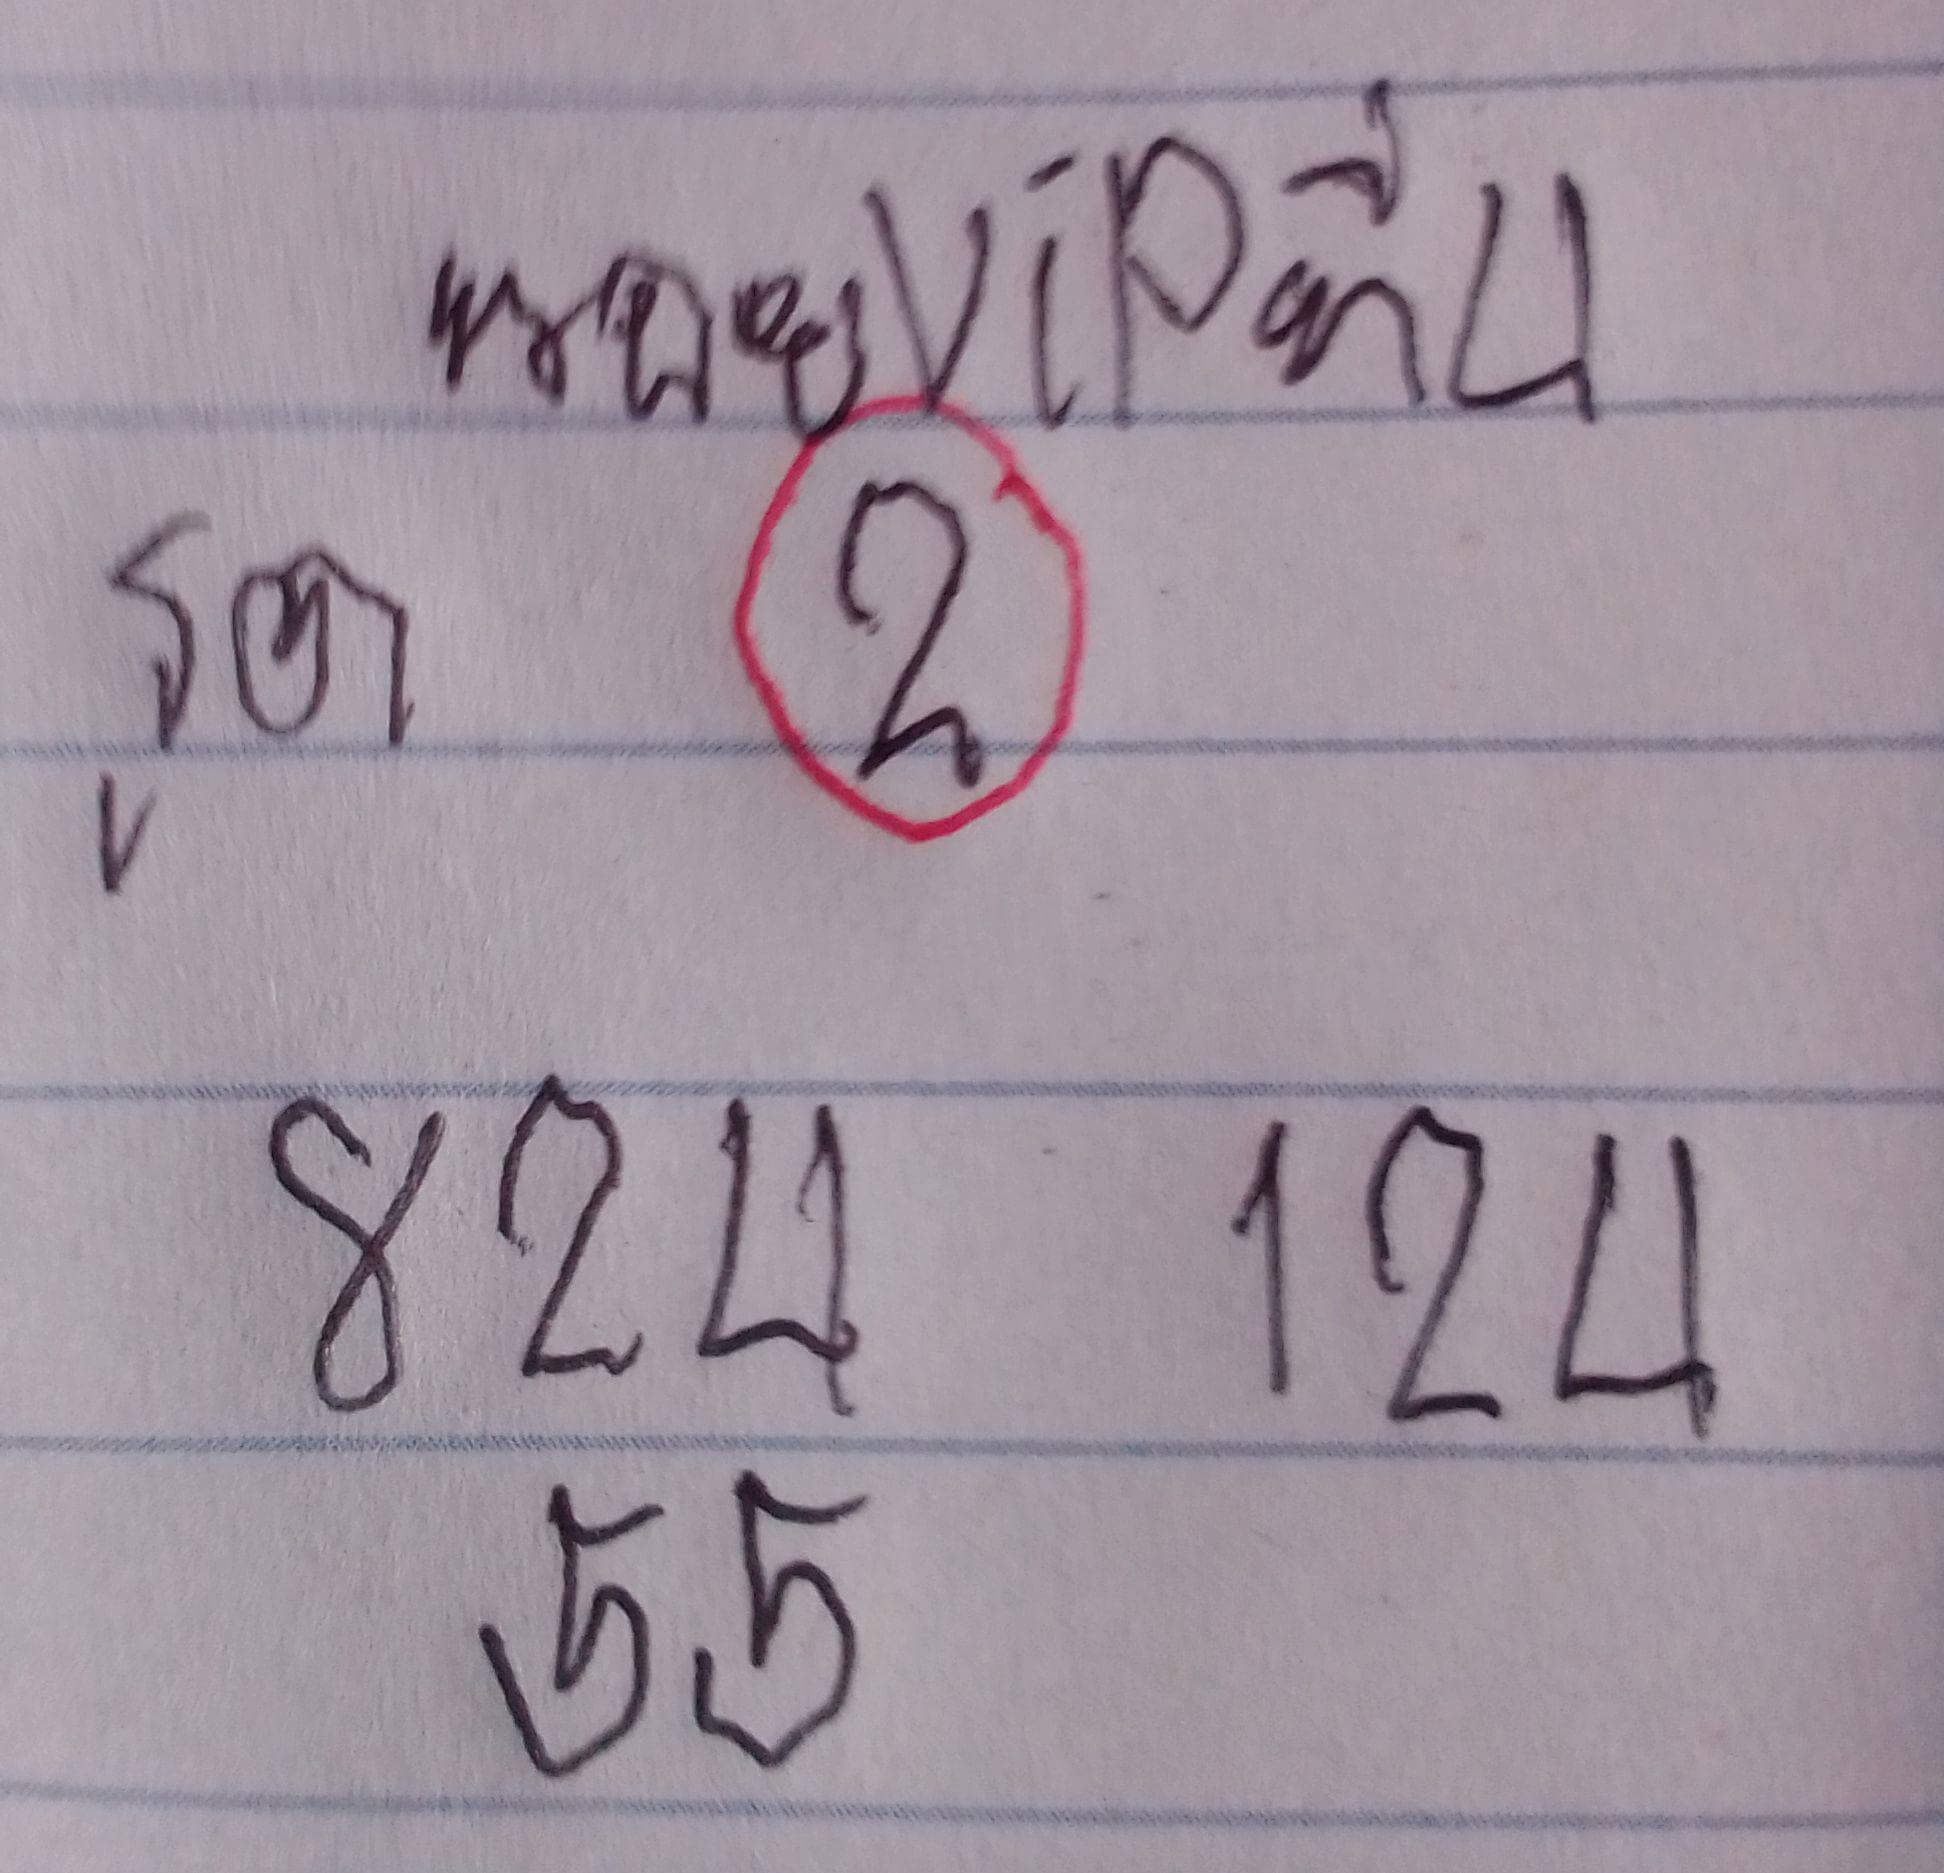 หนอยVIPที่4
รูด 2
824 124
55